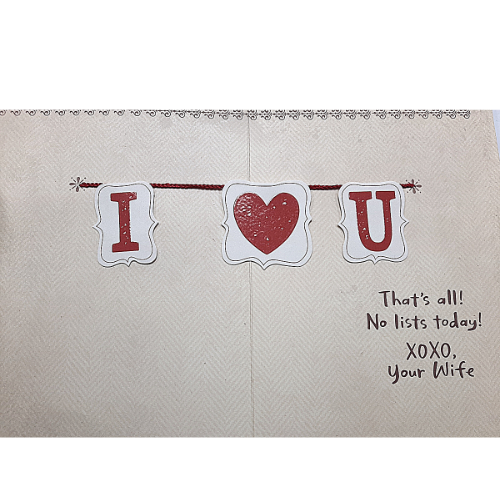 I ♥ U
That's all!
No lists today!
XOXO,
Your Wife